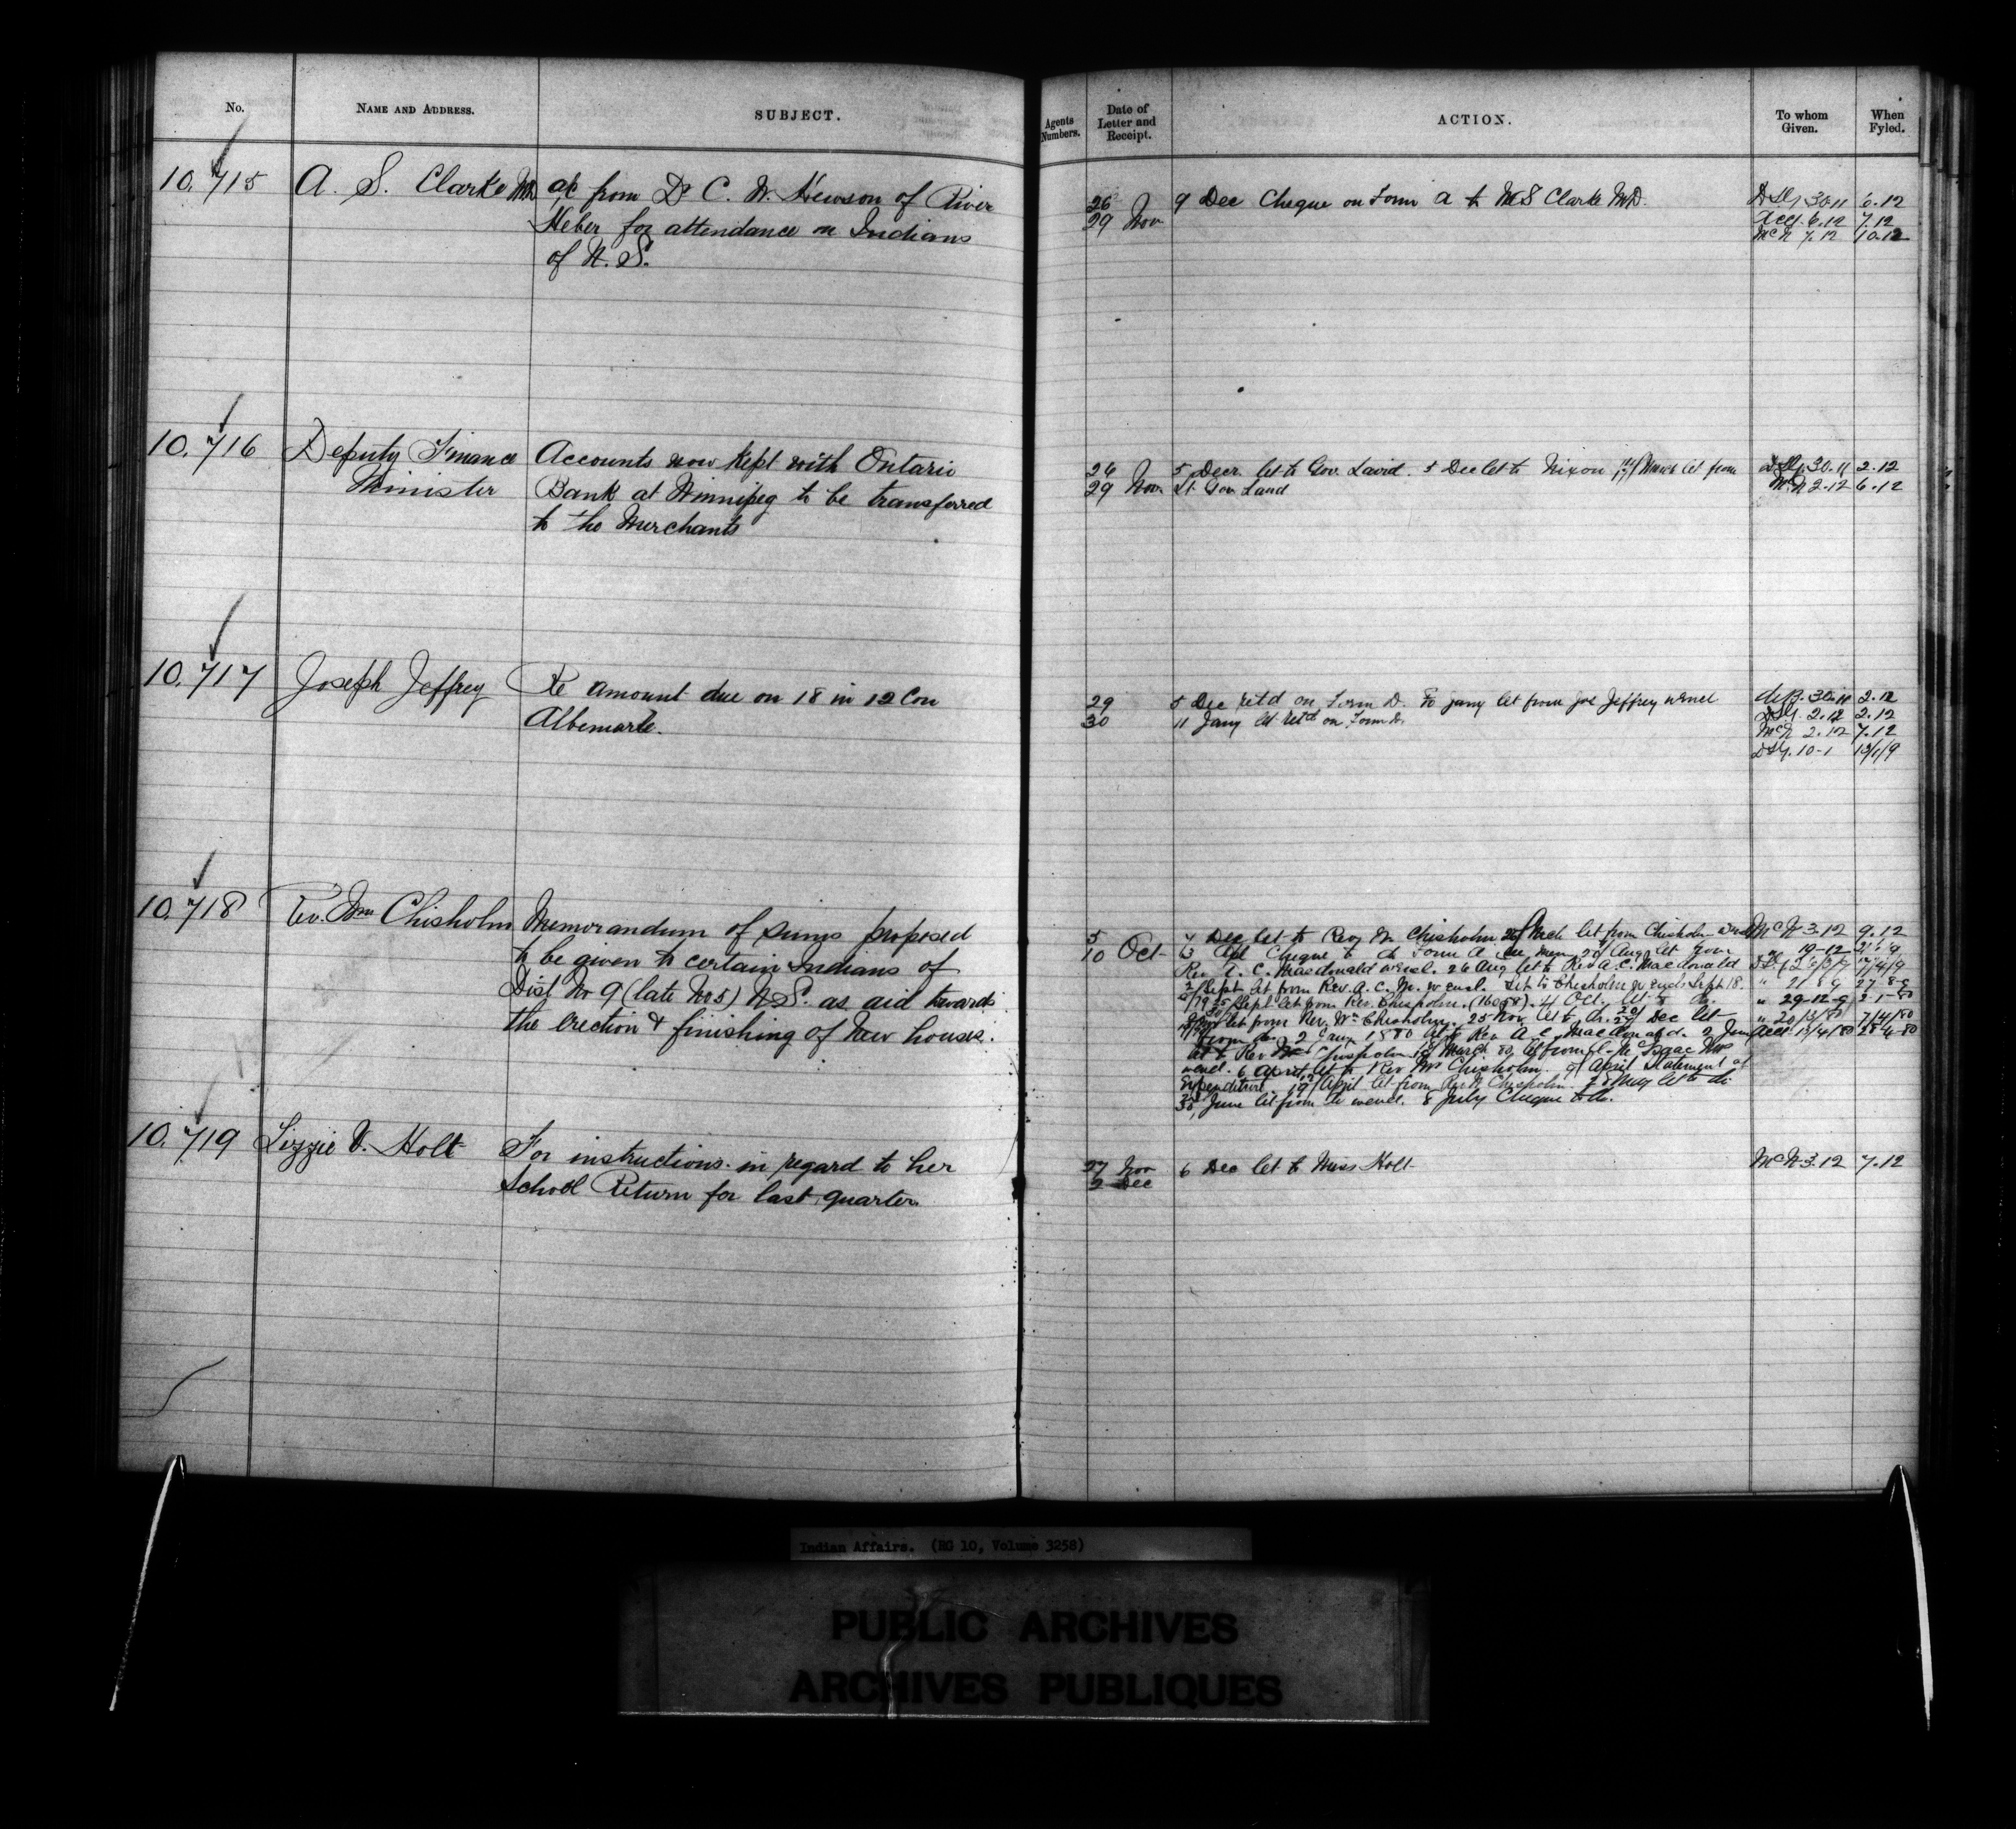 No.
NAME AND ADDRESS.
SUBJECT.
10.715
A. S. Clarke M.D.
a/c from Dr C. W. Hewson of River
Heber for attendance on Indians
of N. S.
10.716
Deputy Finance
Minister
Accounts now kept with Ontario
Bank at Winnipeg to be transferred
to the Merchants
10.717
Joseph Jeffrey
Re amount due on 18 in 12 Con
Albemarle.
10.718
Rev. Wm Chisholm
Memorandum of sums proposed
to be given to certain Indians of
Dist No 9 (late No 5) N.S. as aid towards
the erection & finishing of New houses.
10.719
Lizzie V. Holt
For instructions in regard to her
School Return for last quarter.
Agents Numbers.
Date of Letter and Receipt.
ACTION.
To whom Given.
When Fyled.
26
29 Nov
9 Dec Cheque on Form A to M S Clarke M.D.
30.11 6.12
6.12 7.12
McN 7.12 10.12
26
29 Nov
5 Decr let to Gov. Laird. 5 Dec let to Nixon March let from
Lt Gov Laird
30.11 2.12
McN 2.12 6.12
29
30
5 Dec ret'd on Form D. Jany let from Jos Jeffrey w encl
11 Jany let ret'd on Form D.
30.11 2.12
2.12 2.12
McN 2.12 7.12
10-1 13/1/9
5
10 Oct
7 Dec let to Rev W. Chisholm 26/ Mch let from Chisholm
3 Apl Cheque to do Form A see Mem Aug let from
Rev A. C. Macdonald w encl. 26 Aug let to Rev A. C. Macdonald
Sept let from Rev. A. C. M. w encl. Let to Chisholm w encls Sept 18.
Sept let from Rev. Chisholm. (16058). 4 Oct. let to do.
let from Rev. Wm Chisholm. 25 Nov let to do. Dec let
from do 2 Jany 1880 let to Rev A. C. Macdonald. 2 Jany
let to Rev Chisholm March 80 let from Isaac
wencl. 6 April let to Rev Wm Chisholm. 9/ April Statement of
Expenditure. April let from Rev W Chisholm. 28 May let to do.
June let from do w encl. 8 July Cheque to do.
McN 3.12 9.12
" 19-12
" 21 8 9 27-8-9
" 29-12-9 2-1-80
" 20/3/80 7/4/80
Acct 13/4/80 28-4-80
27 Nov
2 Dec
6 Dec let to Miss Holt
McN 3.12 7.12
Indian Affairs. (RG 10, Volume 3258)
PUBLIC ARCHIVES
ARCHIVES PUBLIQUES